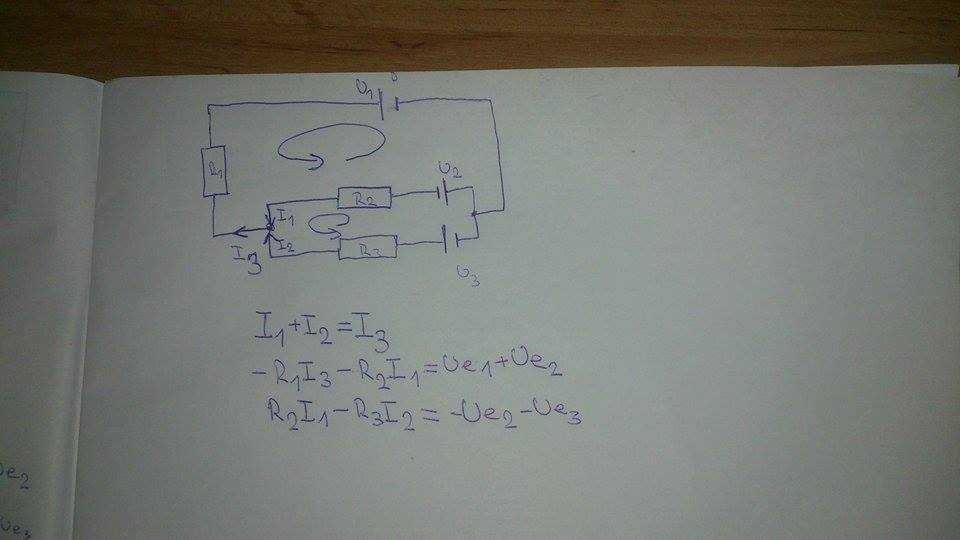 U₁
R₁
U₂
I₁
R₂
I₂
R₃
I₃
U₃
I₁+I₂=I₃
-R₁I₃-R₂I₁=Ue₁+Ue₂
R₂I₁-R₃I₂=-Ue₂-Ue₃
Ue₂
Ue₃